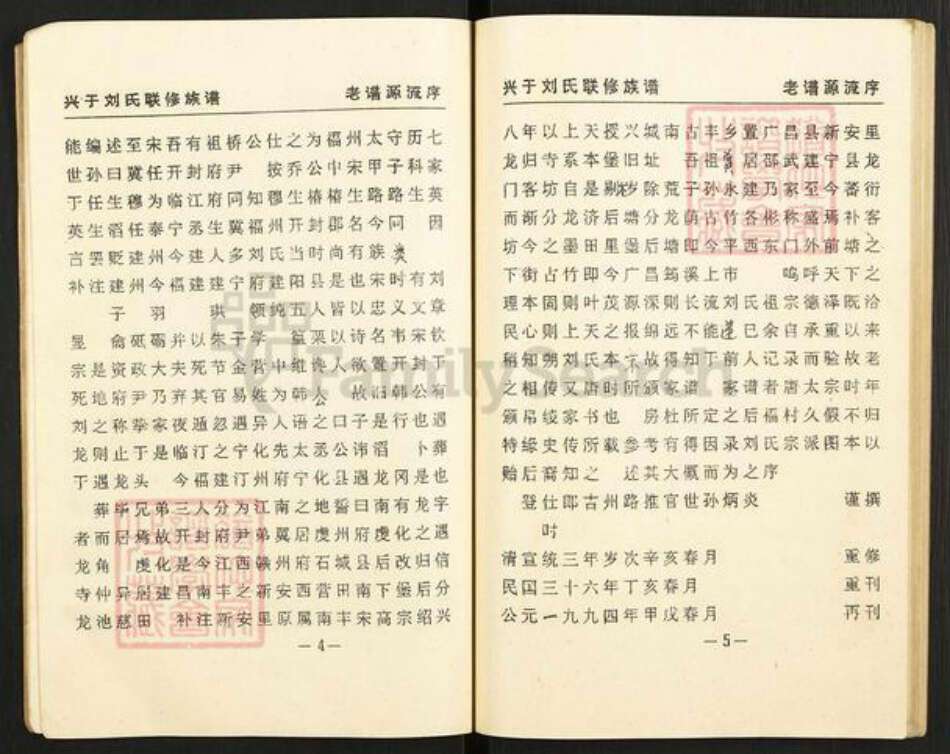 兴于刘氏联修族谱 老谱源流序
能编述至宋吾有祖桥公仕之为福州太守历七
世孙曰冀任开封府尹 按乔公中宋甲子科家
于任生穆为临江府同知穆生椿椿生路路生英
英生滔任泰宁丞生冀福州开封郡名今同 因
言罢贬建州今建人多刘氏当时尚有族类
补注建州今福建建宁府建阳县是也宋时有刘
子羽 珙 领纯五人皆以忠义文章
显 俞砥砺并以朱子学 篁栗以诗名韦宋钦
宗是资政大夫死节金营中维谗人欲置开封于
死地府尹乃弃其官易姓为韩公 故泪韩公有
刘之称挚家夜遁忽遇异人语之口子是行也遇
龙则止于是临汀之宁化先太丞公讳滔 卜葬
于遇龙头 今福建汀州府宁化县遇龙冈是也
葬毕兄弟三人分为江南之地誓曰南有龙字
者而居焉故开封府尹弟翼居虔州府虔化之遇
龙角 虔化是今江西赣州府石城县后改归信
寺仲异居建昌南丰之新安西营田南下堡后分
龙池慈田 补注新安里原属南丰宋高宗绍兴
—4—
兴于刘氏联修族谱 老谱源流序
八年以上天授兴城南古丰乡置广昌县新安里
龙归寺系本堡旧址 吾祖 居邵武建宁县龙
门客坊自是剔秽除荒子孙永建乃家至今蕃衍
而渐分龙济后塘分龙荫古竹各彬称盛焉补客
坊今之墨田里堡后塘即今平西东门外前塘之
下街古竹即今广昌筠溪上市 呜呼天下之
理本固则叶茂源深则长流刘氏祖宗德泽既洽
民心则上天之报绵远不能 已余自承重以来
稍知朔刘氏本宁故得知于前人记录而验故老
之相传又唐时所颁家谱 家谱者唐太宗时年
颁帛绫家书也 房杜所定之后福村久假不归
特缘史传所载参考有得因录刘氏宗派图本以
贻后裔知之 述其大慨而为之序
登仕郎古州路推官世孙炳炎 谨撰
时
清宣统三年岁次辛亥春月 重修
民国三十六年丁亥春月 重刊
公元一九九四年甲戌春月 再刊
—5—
FamilySearch